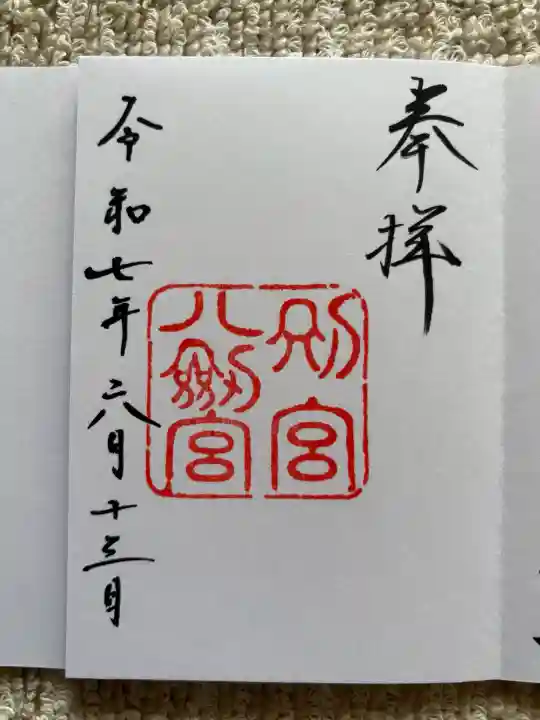 奉拝
別宮
八剱宮
令和七年六月十三日